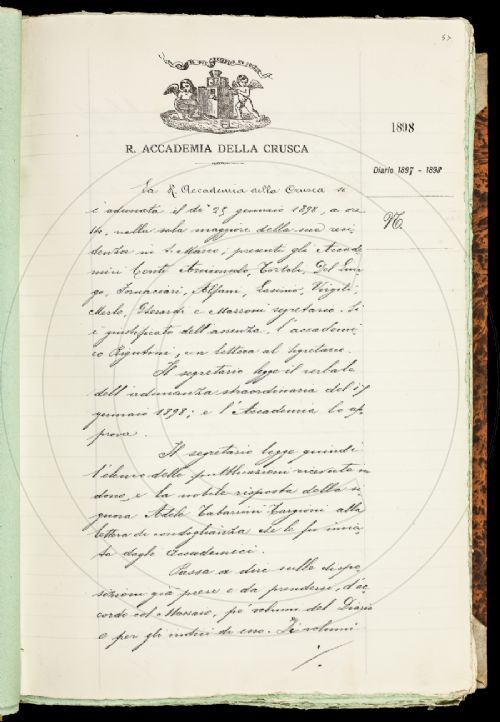 57
R. ACCADEMIA DELLA CRUSCA
1898
Diario 1897 - 1898
La R. Accademia della Crusca si
è adunata il dì 25 gennaio 1898, a ore
nella sala maggiore della sua resi-
denza in S. Marco; presenti gli Accade-
mici Conti, Tortoli, Del Lun-
go, Tornaciari, Alfani, Lasinio, Virgili,
Merlo, Gherardi e Mazzoni segretario. Si
è giustificato dell'assenza l'accademi-
co Rigutini, con lettera al segretario.
Il segretario legge il verbale
dell'adunanza straordinaria del 17
gennaio 1898; e l'Accademia lo ap-
prova.
Il segretario legge quindi
l'elenco delle pubblicazioni ricevute in
dono, e la nobile risposta della si-
gnora Adele Tabarrini Targioni alla
lettera di condoglianza che le fu invia-
ta dagli Accademici.
Passa a dire sulle dispo-
sizioni già prese e da prendersi, d'ac-
cordo col Massaio, pe' volumi del Diario
e per gli indici di esso. I volumi
./.